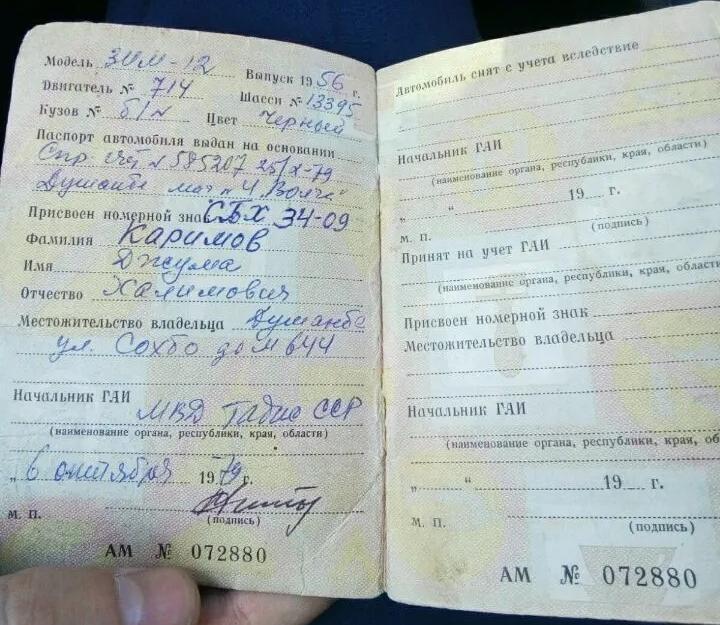 Модель ЗИМ-12 Выпуск 1956 г.
Двигатель № 714 Шасси № 13395
Кузов № б/н Цвет Черный
Паспорт автомобиля выдан на основании
Спр. счет №585207 25/X-79
Душанбе маг. №4 "Волга"
Присвоен номерной знак СБХ 34-09
Фамилия Каримов
Имя Джума
Отчество Халимович
Местожительство владельца Душанбе
ул. Сохбо дом 644
Начальник ГАИ
МВД Тадж ССР
(наименование органа, республики, края, области)
„ 6 октября 1979 г.
М. П. (подпись)
АМ № 072880
Автомобиль снят с учета вследствие
Начальник ГАИ
(наименование органа, республики, края, области)
„ “ 19 г.
М. П. (подпись)
Принят на учет ГАИ
(наименование органа, республики, края, области
Присвоен номерной знак
Местожительство владельца
Начальник ГАИ
(наименование органа, республики, края, об
„ “ 19 г.
М. П. (подпись)
АМ № 072880